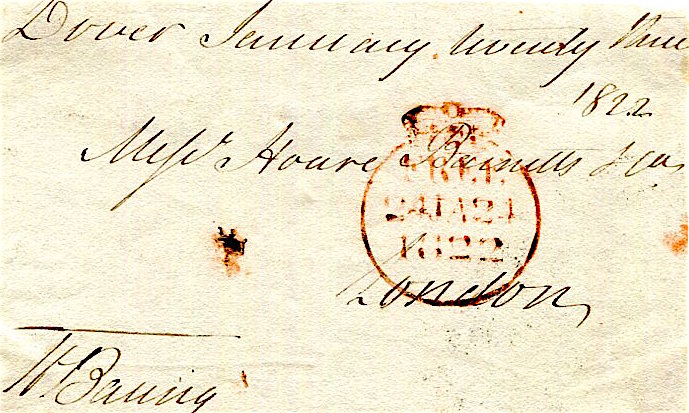 Dover January twenty three
1822
Messrs Hoare Barnetts & Co
FREE
24 JA 24
1822
London
W. Baring